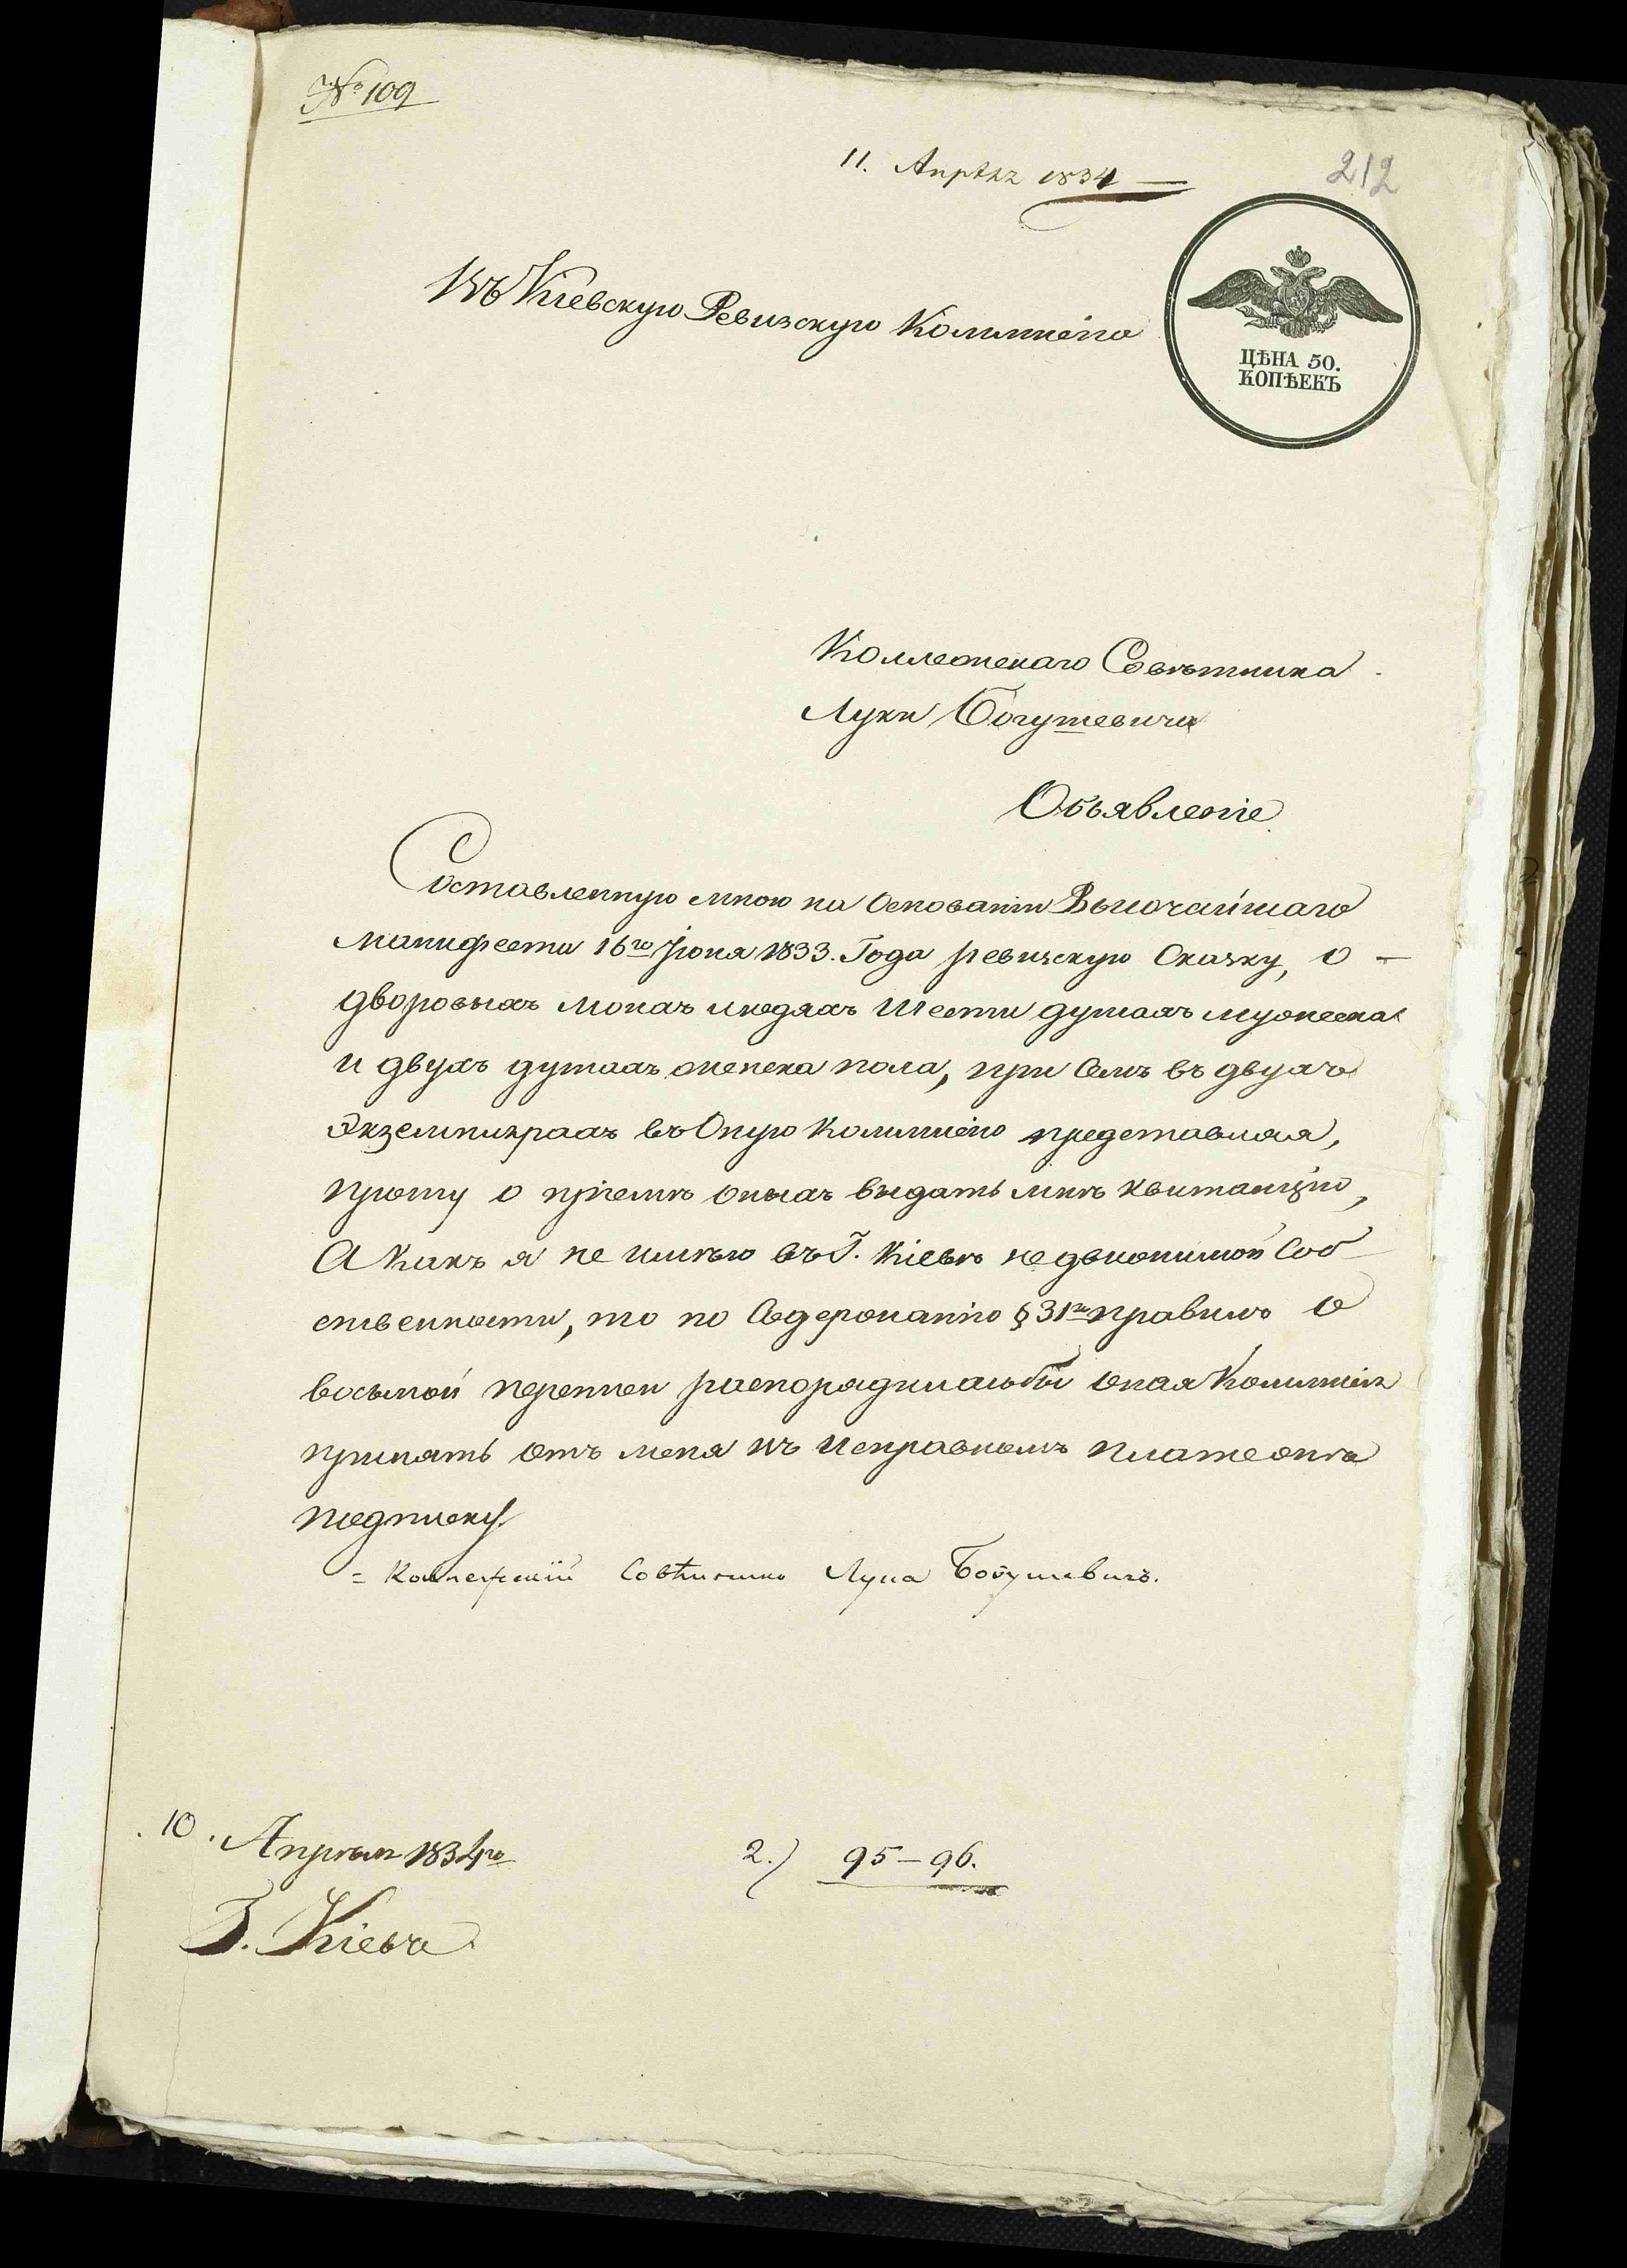 № 109
11. Апрѣля 1834
212
Въ Кіевскую Ревизскую Коммисію
ЦѢНА 50.
КОПѢЕКЪ
Коллежскаго Совѣтника
Луки Богушевича
Объявленіе
Составленную мною на Основаніи Высочайшаго
Манифеста 16го Іюня 1833. Года ревизскую Сказку, о —
дворовыхъ моихъ людяхъ шести душахъ мужеска
и двухъ душахъ женска пола, при Семъ въ двухъ
Экземплярахъ въ Оную Коммисію представляя,
прошу о пріемѣ оныхъ выдать мнѣ квитанцію,
А Какъ я не имѣю въ Г. Кіевѣ недвижимой Соб
ственности, то по Содержанію § 31го правилъ о
восьмой переписи распорядилась бы оная Коммисія
принять отъ меня въ исправномъ платежѣ
подписку
= Коллежскій Совѣтникъ Лука Богушевичъ.
10. Апрѣля 1834го
Г. Кіевъ
2.) 95-96.